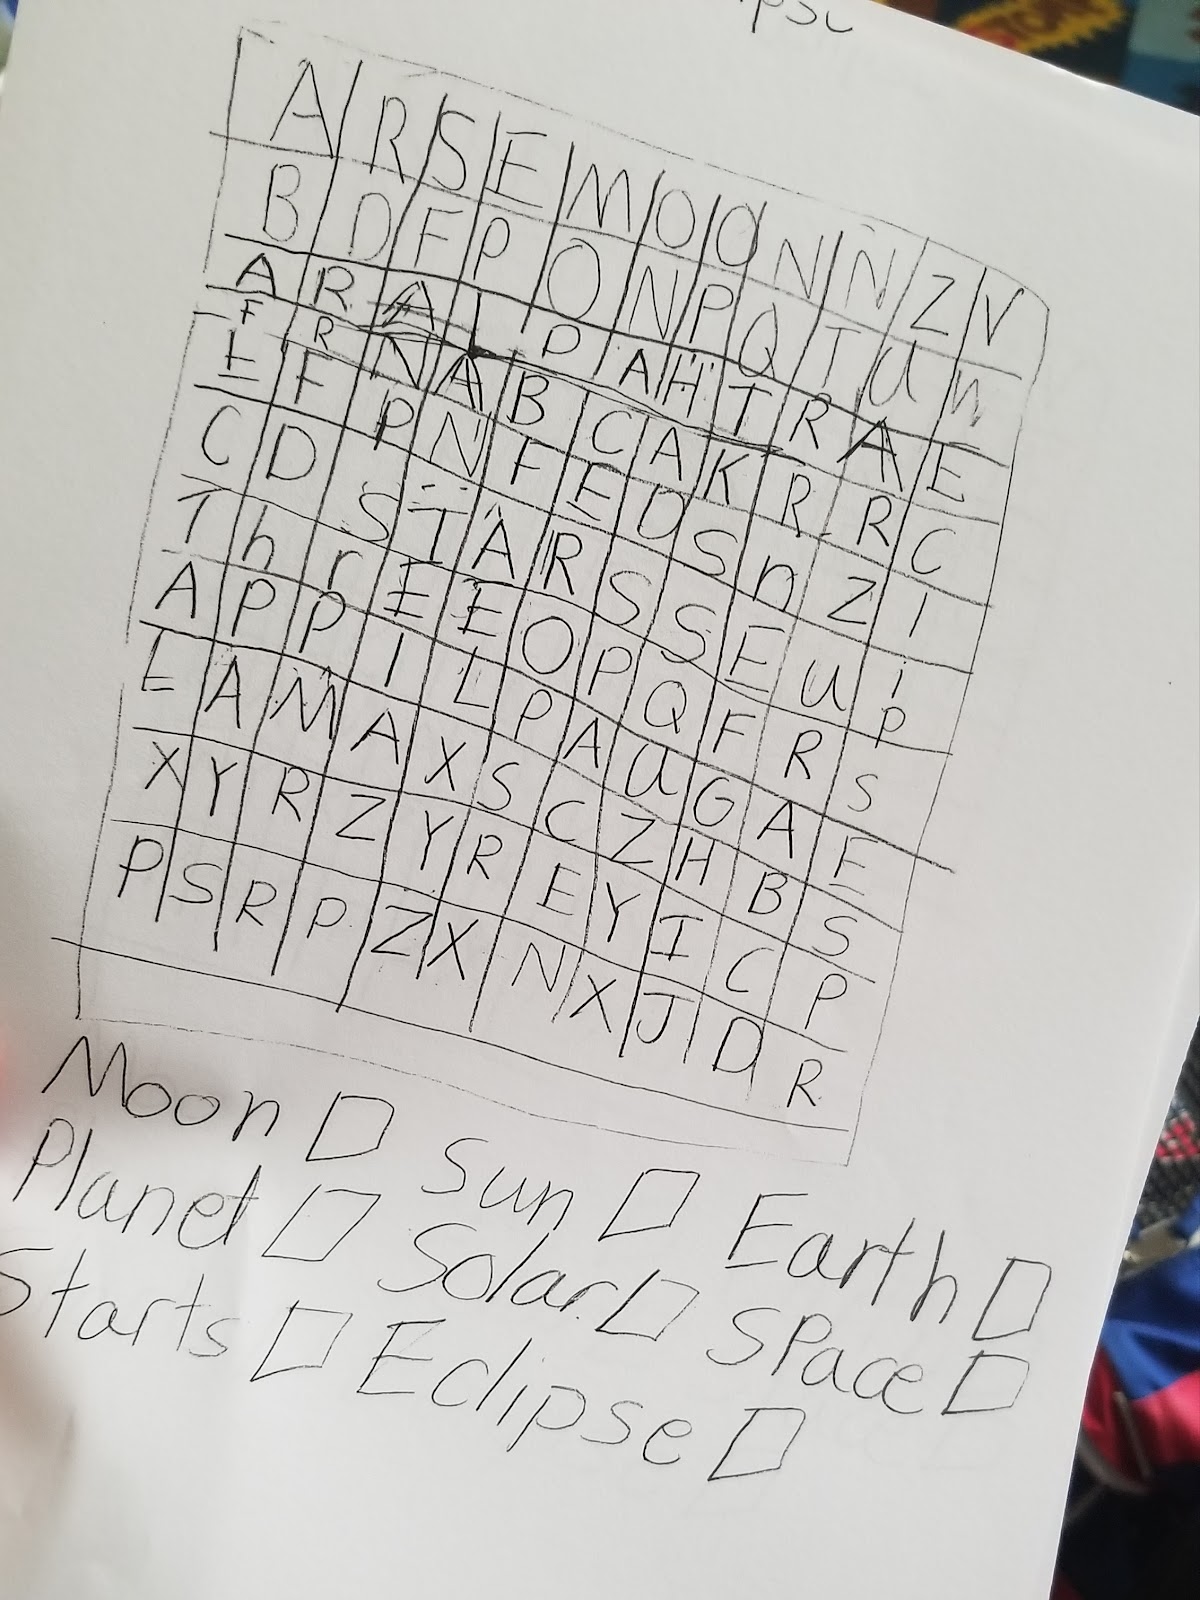 A R S E M O O N N Z V
B D F P O N P Q T U W
A R A L P A H T R A E
F R N A B C A K R R C
E F P N F E D S n Z l
C D S T A R S S E U i
T h r E E O P Q F R p
A P P I L P A U G A S
E A M A X S C Z H B E
X Y R Z Y R E Y I C S
P S R P Z X N X J D P
R
Moon Sun Earth
Planet Solar SPace
Starts Eclipse